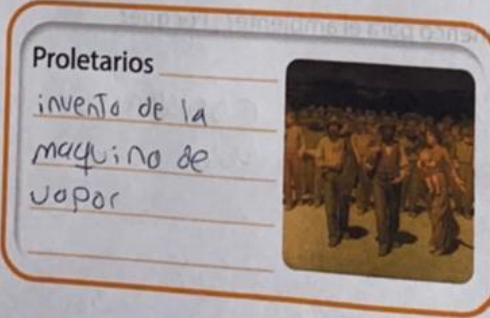 Proletarios
invento de la
maquino de
vopor